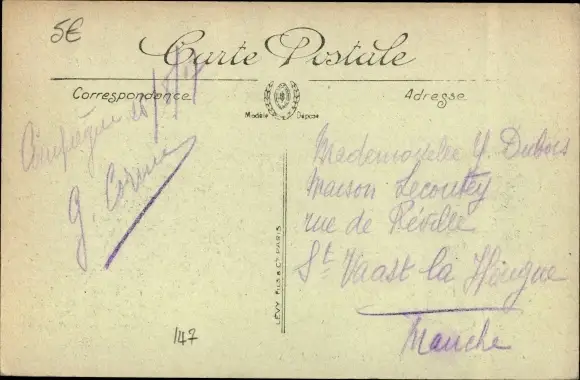 5€
Carte Postale
Correspondance
Adresse
Modèle Déposé
Compiègne
G.
Mademoiselle Y. Dubois
Maison Lecoutey
rue de Réville
St Vaast la Hougue
Manche
LÉVY FILS & Cie PARIS
147